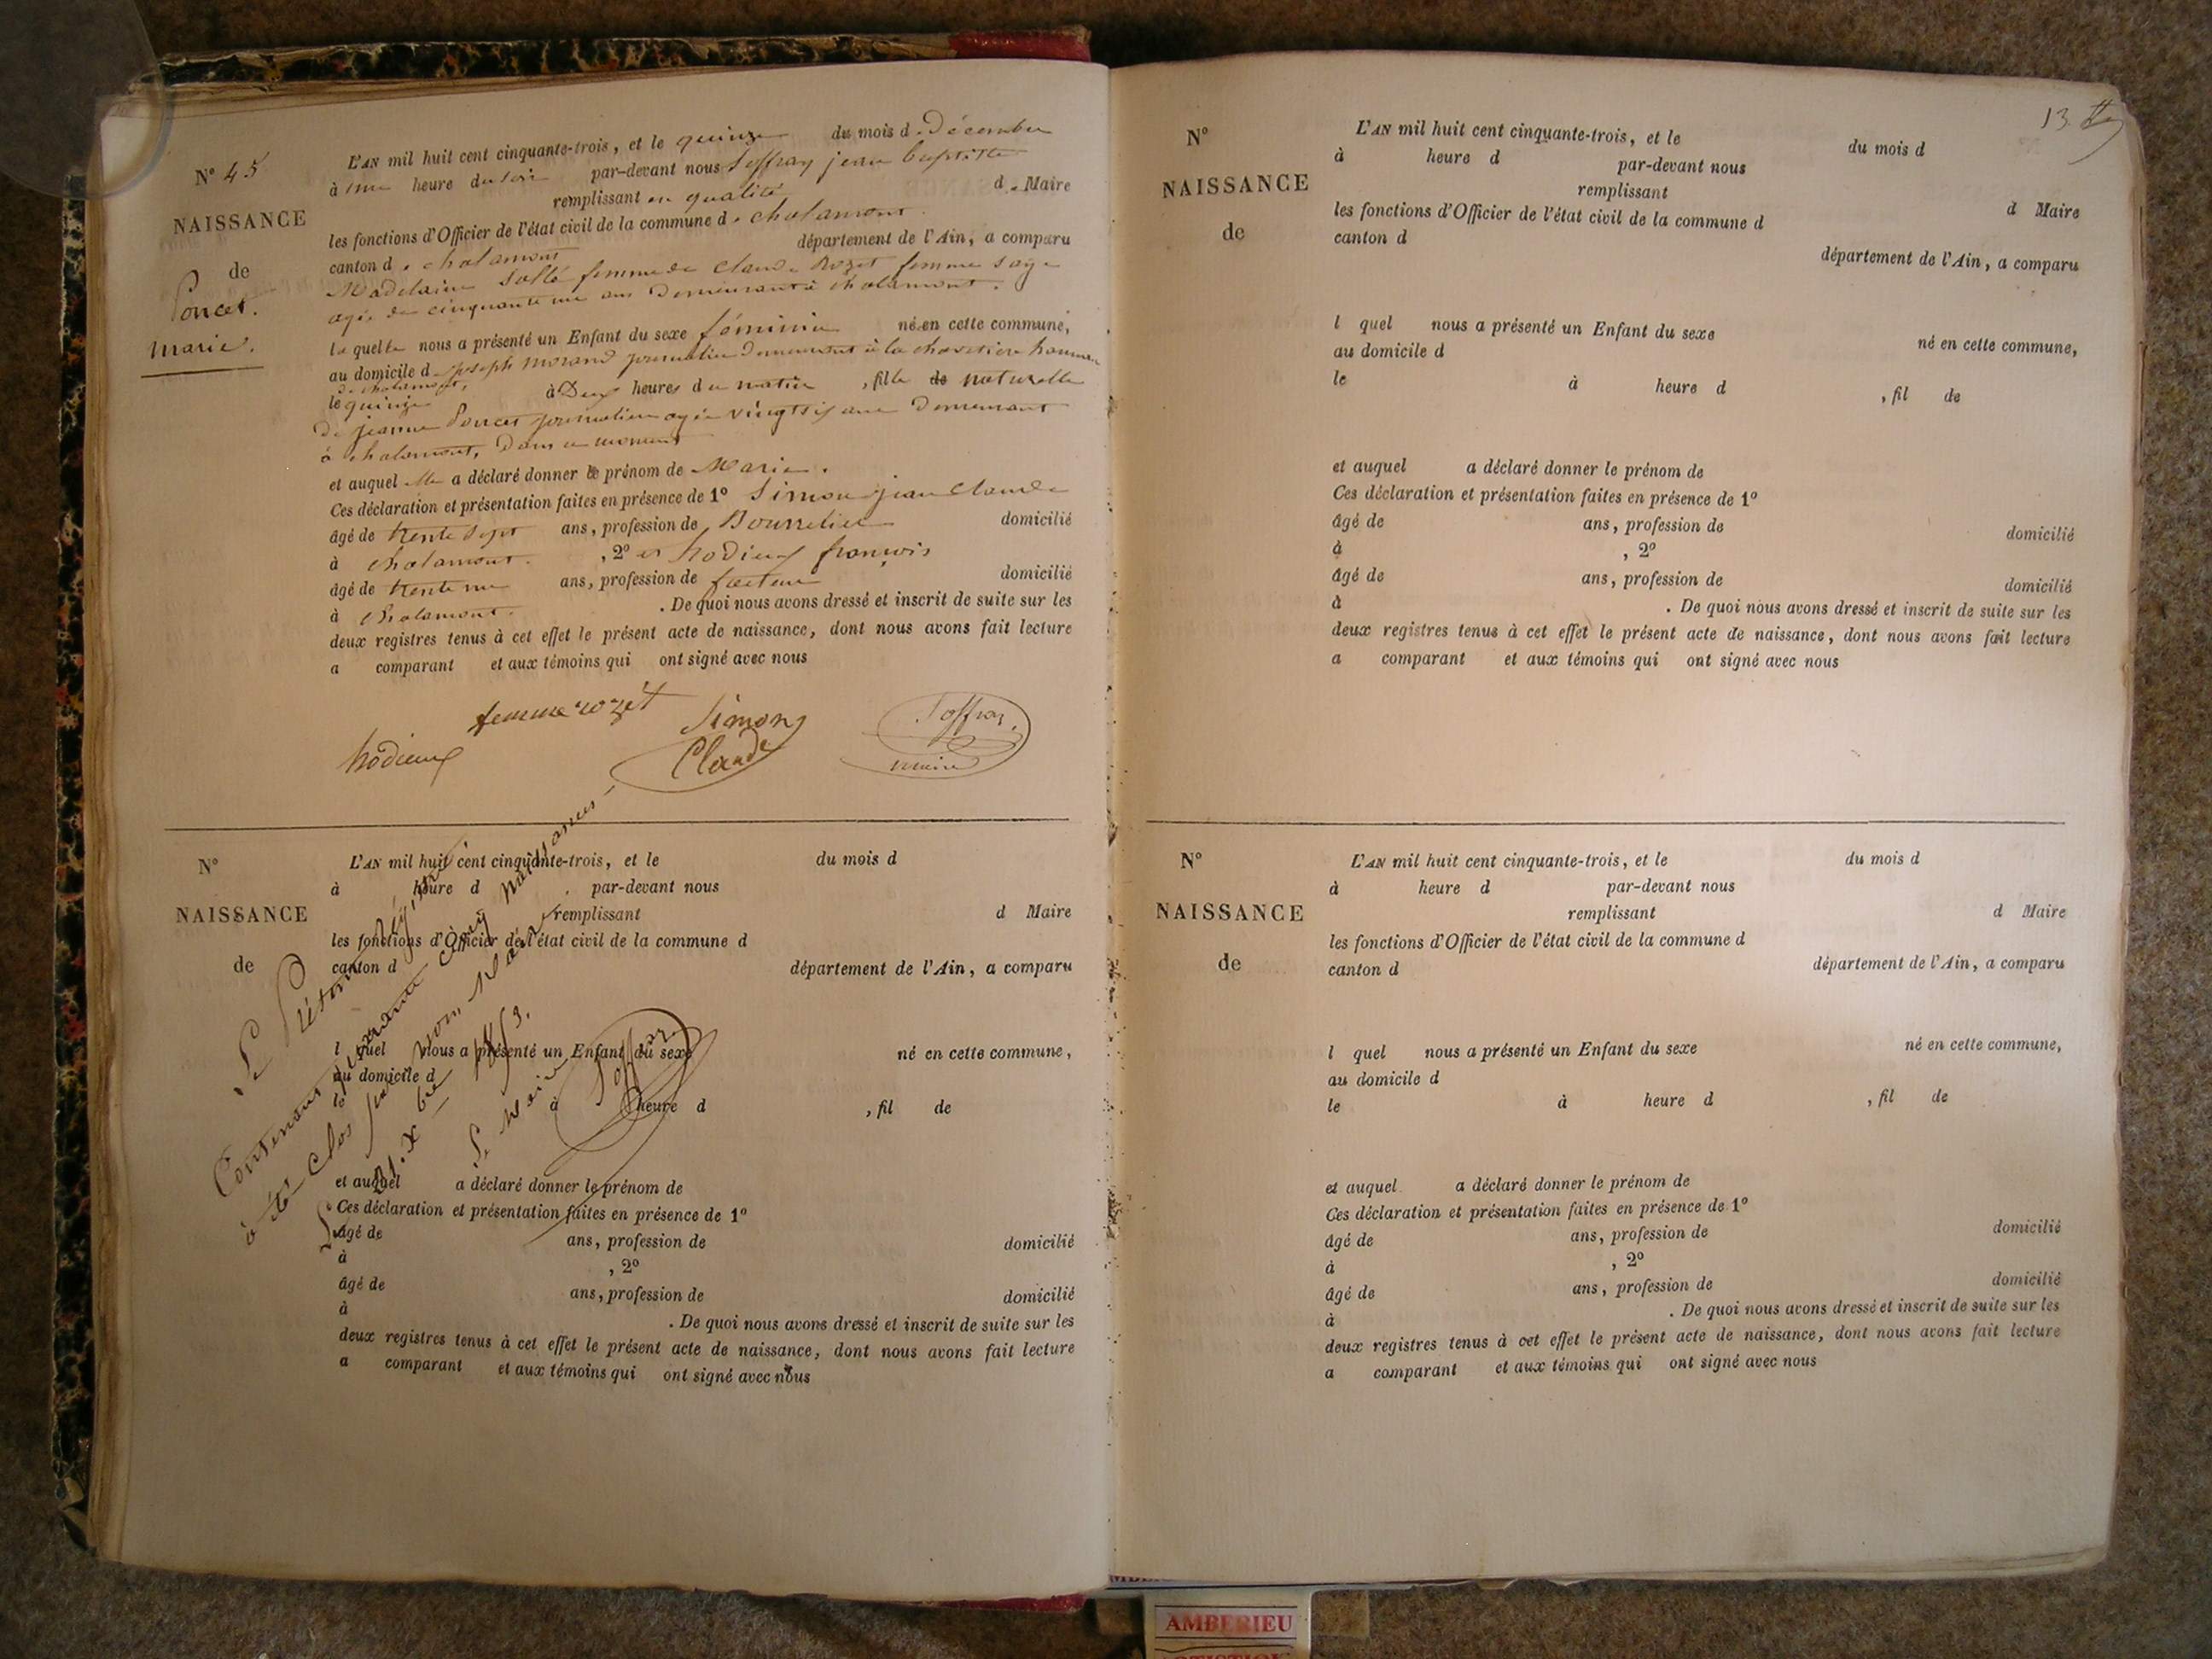 N° 45
NAISSANCE
de
Poncet.
marie.
L'AN mil huit cent cinquante-trois, et le quinze du mois d. Décembre
à une heure du soir par-devant nous Joffray jean baptiste
remplissant en qualité d. Maire
les fonctions d'Officier de l'état civil de la commune d. chalamont.
canton d. chalamont département de l'Ain, a comparu
Madelaine femme de Claude Rozet femme sage
agée de cinquante un ans demeurant à chalamont.
la quelle nous a présenté un Enfant du sexe féminin né en cette commune,
au domicile d. joseph morand journalier demeurant à la
de chalamont,
le quinze à Deux heures du matin, fille de naturelle
De jeanne Poncet agée vingt six ans Demeurant
à chalamont, Dans ce moment
et auquel elle a déclaré donner le prénom de Marie.
Ces déclaration et présentation faites en présence de 1° Simon jean Claude
âgé de trente sept ans, profession de Bourrelier domicilié
à chalamont. , 2° et hodieux françois
âgé de trente un ans, profession de facteur domicilié
à chalamont. . De quoi nous avons dressé et inscrit de suite sur les
deux registres tenus à cet effet le présent acte de naissance, dont nous avons fait lecture
a comparant et aux témoins qui ont signé avec nous
femme rozet Simon Joffray
hodieux Claude maire
N°
NAISSANCE
de
L'AN mil huit cent cinquante-trois, et le du mois d
à heure d par-devant nous
remplissant d Maire
les fonctions d'Officier de l'état civil de la commune d
canton d département de l'Ain, a comparu
l quel nous a présenté un Enfant du sexe né en cette commune,
au domicile d
le à heure d , fil de
et auquel a déclaré donner le prénom de
Ces déclaration et présentation faites en présence de 1°
âgé de ans, profession de domicilié
à , 2°
âgé de ans, profession de domicilié
à . De quoi nous avons dressé et inscrit de suite sur les
deux registres tenus à cet effet le présent acte de naissance, dont nous avons fait lecture
a comparant et aux témoins qui ont signé avec nous
Le Présent Régistre
Contenant quarante cinq naissances
a été Clos par nous Maire
Le 31. Xbre 1853.
Le Maire
Joffray
13
N°
NAISSANCE
de
L'AN mil huit cent cinquante-trois, et le du mois d
à heure d par-devant nous
remplissant d Maire
les fonctions d'Officier de l'état civil de la commune d
canton d
département de l'Ain, a comparu
l quel nous a présenté un Enfant du sexe né en cette commune,
au domicile d
le à heure d , fil de
et auquel a déclaré donner le prénom de
Ces déclaration et présentation faites en présence de 1°
âgé de ans, profession de domicilié
à , 2°
âgé de ans, profession de domicilié
à . De quoi nous avons dressé et inscrit de suite sur les
deux registres tenus à cet effet le présent acte de naissance, dont nous avons fait lecture
a comparant et aux témoins qui ont signé avec nous
N°
NAISSANCE
de
L'AN mil huit cent cinquante-trois, et le du mois d
à heure d par-devant nous
remplissant d Maire
les fonctions d'Officier de l'état civil de la commune d
canton d département de l'Ain, a comparu
l quel nous a présenté un Enfant du sexe né en cette commune,
au domicile d
le à heure d , fil de
et auquel a déclaré donner le prénom de
Ces déclaration et présentation faites en présence de 1°
âgé de ans, profession de domicilié
à , 2°
âgé de ans, profession de domicilié
à . De quoi nous avons dressé et inscrit de suite sur les
deux registres tenus à cet effet le présent acte de naissance, dont nous avons fait lecture
a comparant et aux témoins qui ont signé avec nous
AMBERIEU